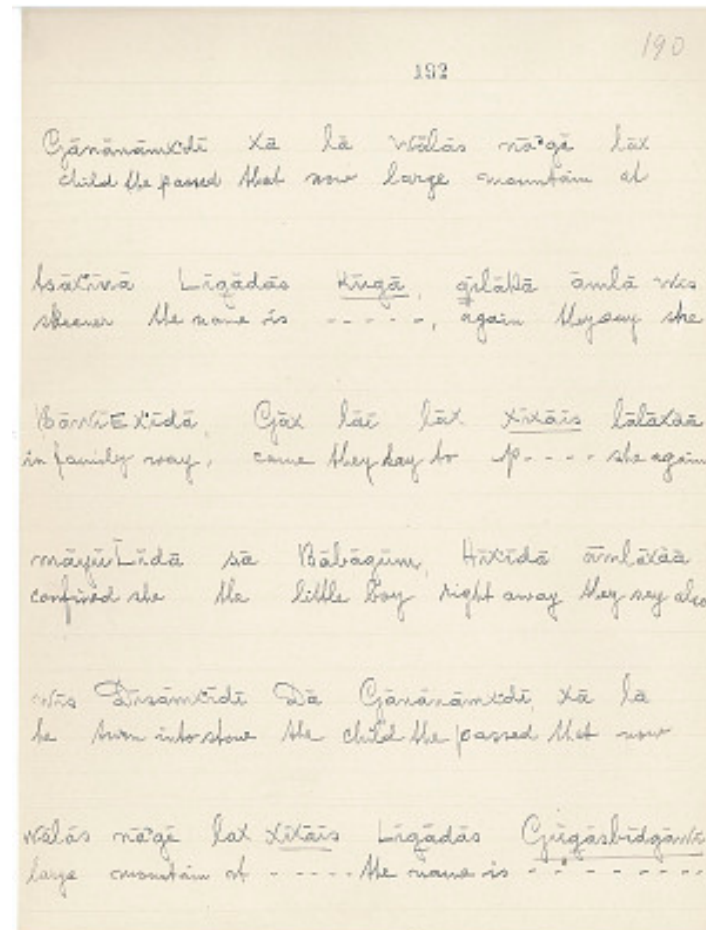 190
192
Gānānāmxdē Xā lā Wālās nā'gē lāx
child the passed that now large mountain at
tsāxīvā Līgādās Kūgā, gīlākā āmlā wis
skeener the name is - - - - -, again they say she
BāwīExīdā, Gāx lāē lāx Xīxāis lālāxāā
in family way, came they say to p - - - - she again
māyūLīdā sā Bābāgūm, Hīxīdā āmlāxāā
confined she the little boy right away they say also
wis Tīsāmxīdē Dā Gānānāmxdē, Xā lā
he turn into stone the child the passed that now
Wālās nā'gē lax Xīxāis Līgādās Gūgāsbīdgāwīs
large mountain at - - - - - the name is - - - - - - - -